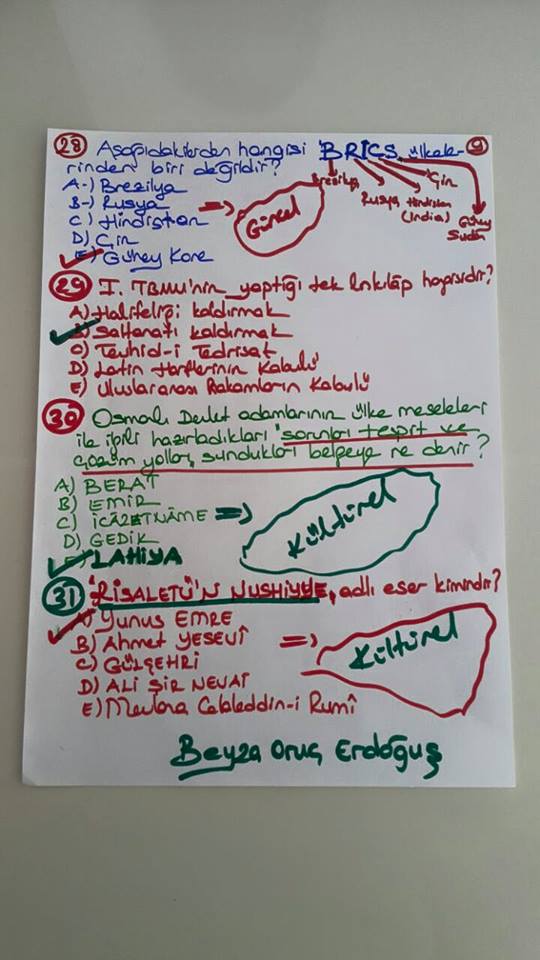 28 Aşağıdakilerden hangisi BRICS ülkele- 9
rinden biri değildir?
A-) Brezilya
B-) Rusya
C) Hindistan
D) Çin
E) Güney Kore
=> Güncel
Brezilya
Rusya
Hindistan
(India)
Çin
Güney
Sudan
29 I. TBMM'nin yaptığı tek inkılâp hangisidir?
A) Halifeliği kaldırmak
B) Saltanatı kaldırmak
C) Tevhid-i Tedrisat
D) Latin Harflerinin Kabulü
E) Uluslararası Rakamların Kabulü
30 Osmanlı Devlet adamlarının ülke meseleleri
ile ilgili hazırladıkları "sorunları tespit ve
çözüm yolları sundukları belgeye ne denir?
A) BERAT
B) EMİR
C) İCÂZETNÂME => Kültürel
D) GEDİK
LAHİYA
31 "RİSALETÜ'N NUSHİYYE, adlı eser kimindir?
A) YUNUS EMRE
B) Ahmet YESEVÎ => Kültürel
C) GÜLŞEHRİ
D) ALİ ŞİR NEVAİ
E) Mevlana Celaleddin-i Rumî
Beyza Oruç Erdoğuş